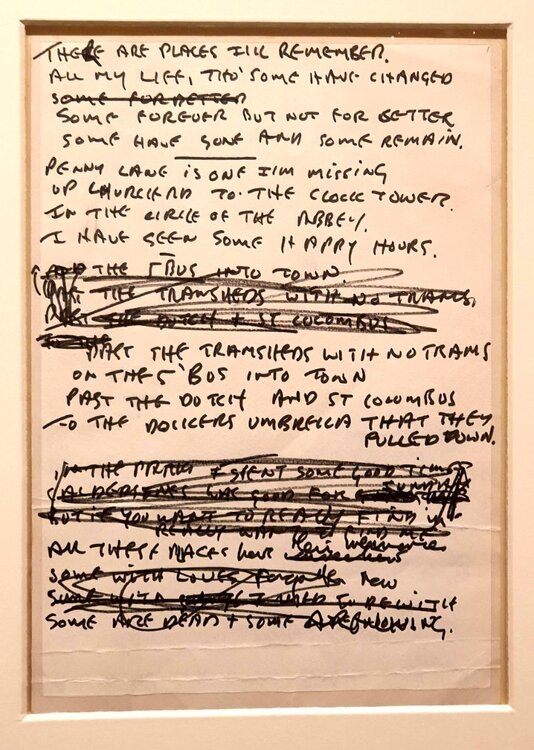 THERE ARE PLACES I'LL REMEMBER.
ALL MY LIFE, THO' SOME HAVE CHANGED
SOME FOR BETTER
SOME FOREVER BUT NOT FOR BETTER
SOME HAVE GONE AND SOME REMAIN.
PENNY LANE IS ONE I'M MISSING
UP CHURCH RD TO THE CLOCK TOWER.
IN THE CIRCLE OF THE ABBEY.
I HAVE SEEN SOME HAPPY HOURS.
THE 5 BUS INTO TOWN.
THE TRAMSHEDS WITH NO TRAMS,
THE DUTCH + ST COLUMBUS
PAST THE TRAMSHEDS WITH NO TRAMS
ON THE 5 BUS INTO TOWN
PAST THE DUTCH AND ST COLUMBUS
TO THE DOCKERS UMBRELLA THAT THEY
PULLED DOWN.
IN THE PARKS I SPENT SOME GOOD TIMES
WAS GOOD FOR
BUT IF YOU WANT TO REALLY FIND
REALLY WANT FIND ME
ALL THESE PLACES HAVE
SOME WITH LOVES forgotten NOW
SOME WITH TO BE WITH
SOME ARE DEAD + SOME ARE LIVING.